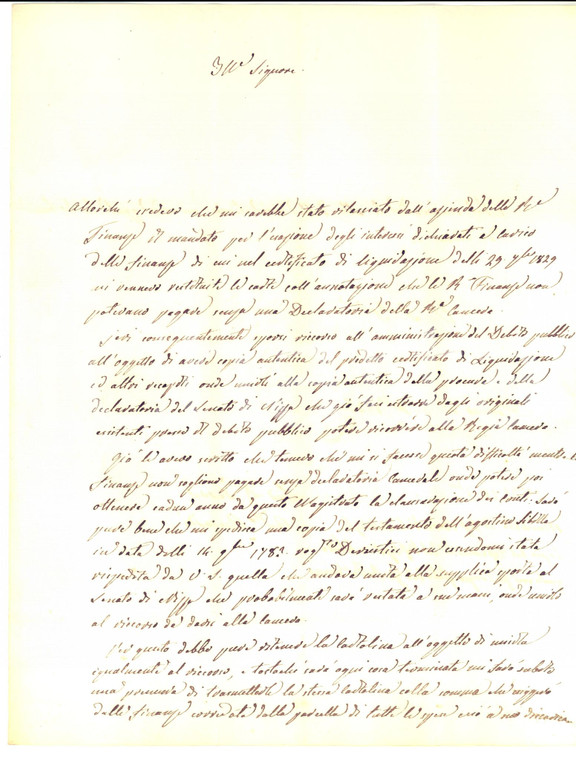 Ill.e Signore.
Allorchè credevo che mi sarebbe stato rilasciato dall'azienda delle R.e
Finanze il mandato per l'esazione degli interessi dichiarati a carico
delle finanze di cui nel certificato di liquidazione delli 29 7bre 1829
mi vennero restituite le carte coll'annotazione che le R. Finanze non
potevano pagare senza una Declaratoria della R.a Camera.
Ivi conseguentemente sporsi ricorso all'amministrazione del Debito pubblico
all'oggetto di avere copia autentica del predetto certificato di Liquidazione
ed altri recapiti onde uniti alla copia autentica della procura e della
declaratoria del Senato di Nizza che già feci estrarre dagli originali
esistenti presso il debito pubblico potere ricorrere alla Regia Camera.
Già le avevo scritto che temevo che mi si facesse questa difficoltà mentre le
Finanze non vogliono pagare senza declaratoria Camerale onde potere poi
ottenere cadun anno da questo Magistrato la
pure bene che mi spedisca una copia del testamento dell'agostino
in data delli 14 9bre 1783 rog.to non essendomi stata
rispedita da V. S. quella che andava unita alla supplica sporta al
Senato di Nizza che probabilmente sarà restata a sue mani, onde unirlo
al ricorso da darsi alla Camera.
Per questo debbo pure ritenere la Cartolina all'oggetto di unirla
igualmente al ricorso, e tostochè sarà ogni cosa terminata mi farò subito
una premura di trasmetterle la stessa Cartolina colla somma che esiggerò
dalle finanze corredata dalla parcella di tutte le spese